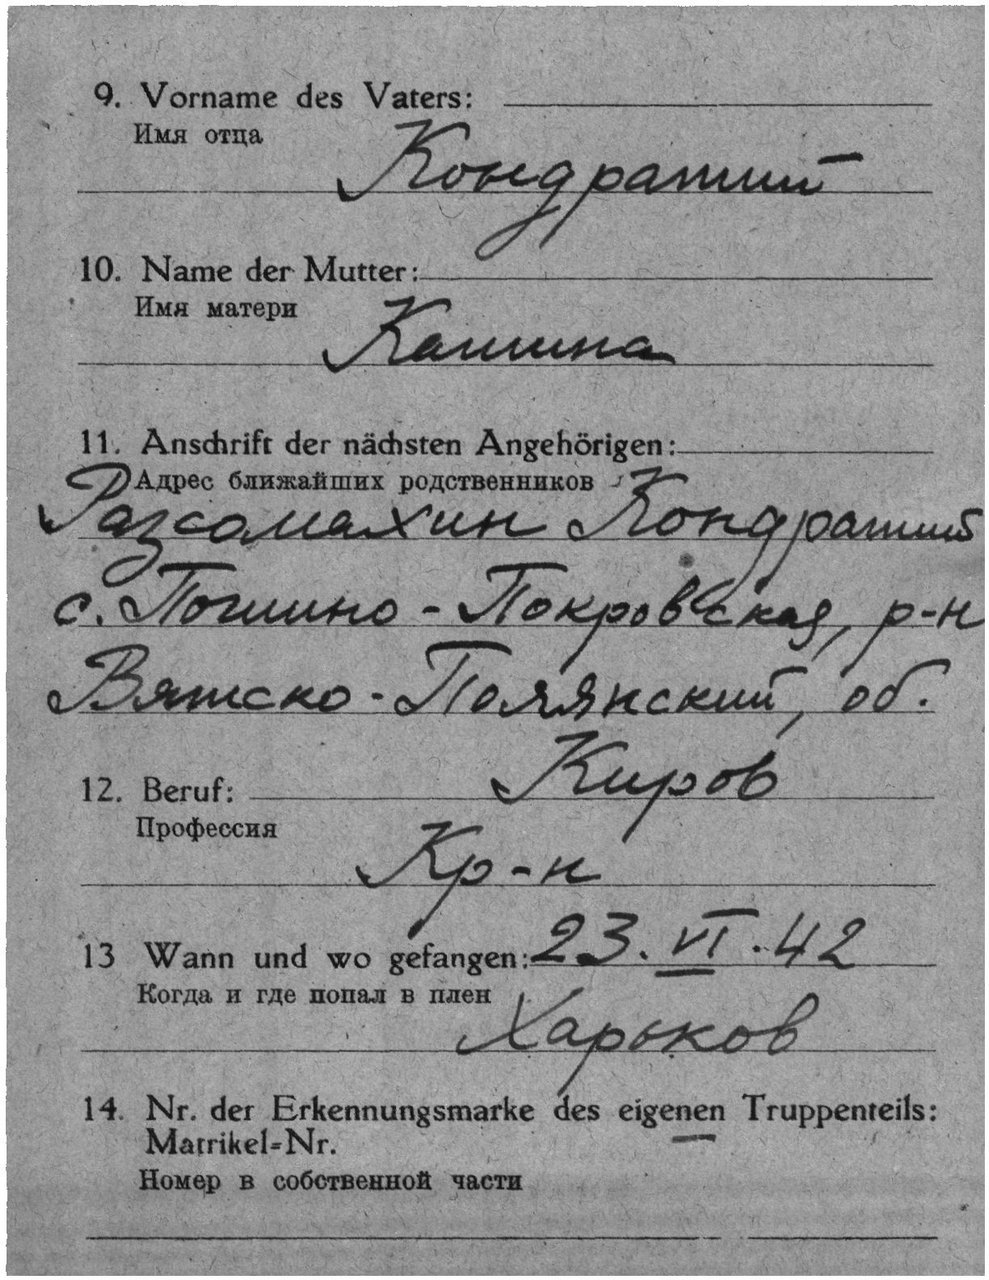 9. Vorname des Vaters:
Имя отца
Кондратий
10. Name der Mutter:
Имя матери
Кашина
11. Anschrift der nächsten Angehörigen:
Адрес ближайших родственников
Разсомахин Кондратий
с. - Покровская, р-н
Вятско-Полянский, об.
Киров
12. Beruf:
Профессия
Кр-н
13 Wann und wo gefangen: 23. VI. 42
Когда и где попал в плен
Харьков
14. Nr. der Erkennungsmarke des eigenen Truppenteils:
Matrikel=Nr.
Номер в собственной части
—